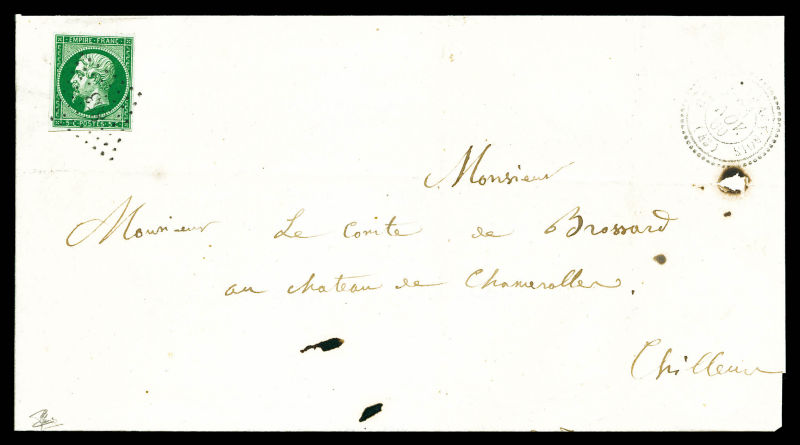 EMPIRE FRANC.
5 C. POSTES 5 C.
Monsieur
Monsieur Le Comte de Brossard
au chateau de Chamerolles.
Chilleurs